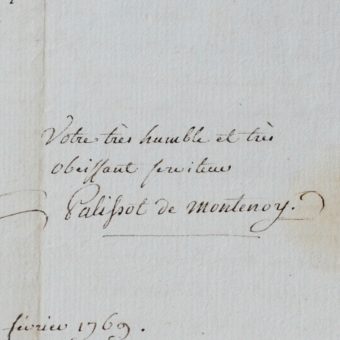 Votre très humble et très
obeissant serviteur
Palissot de Montenoy.
février 1769.